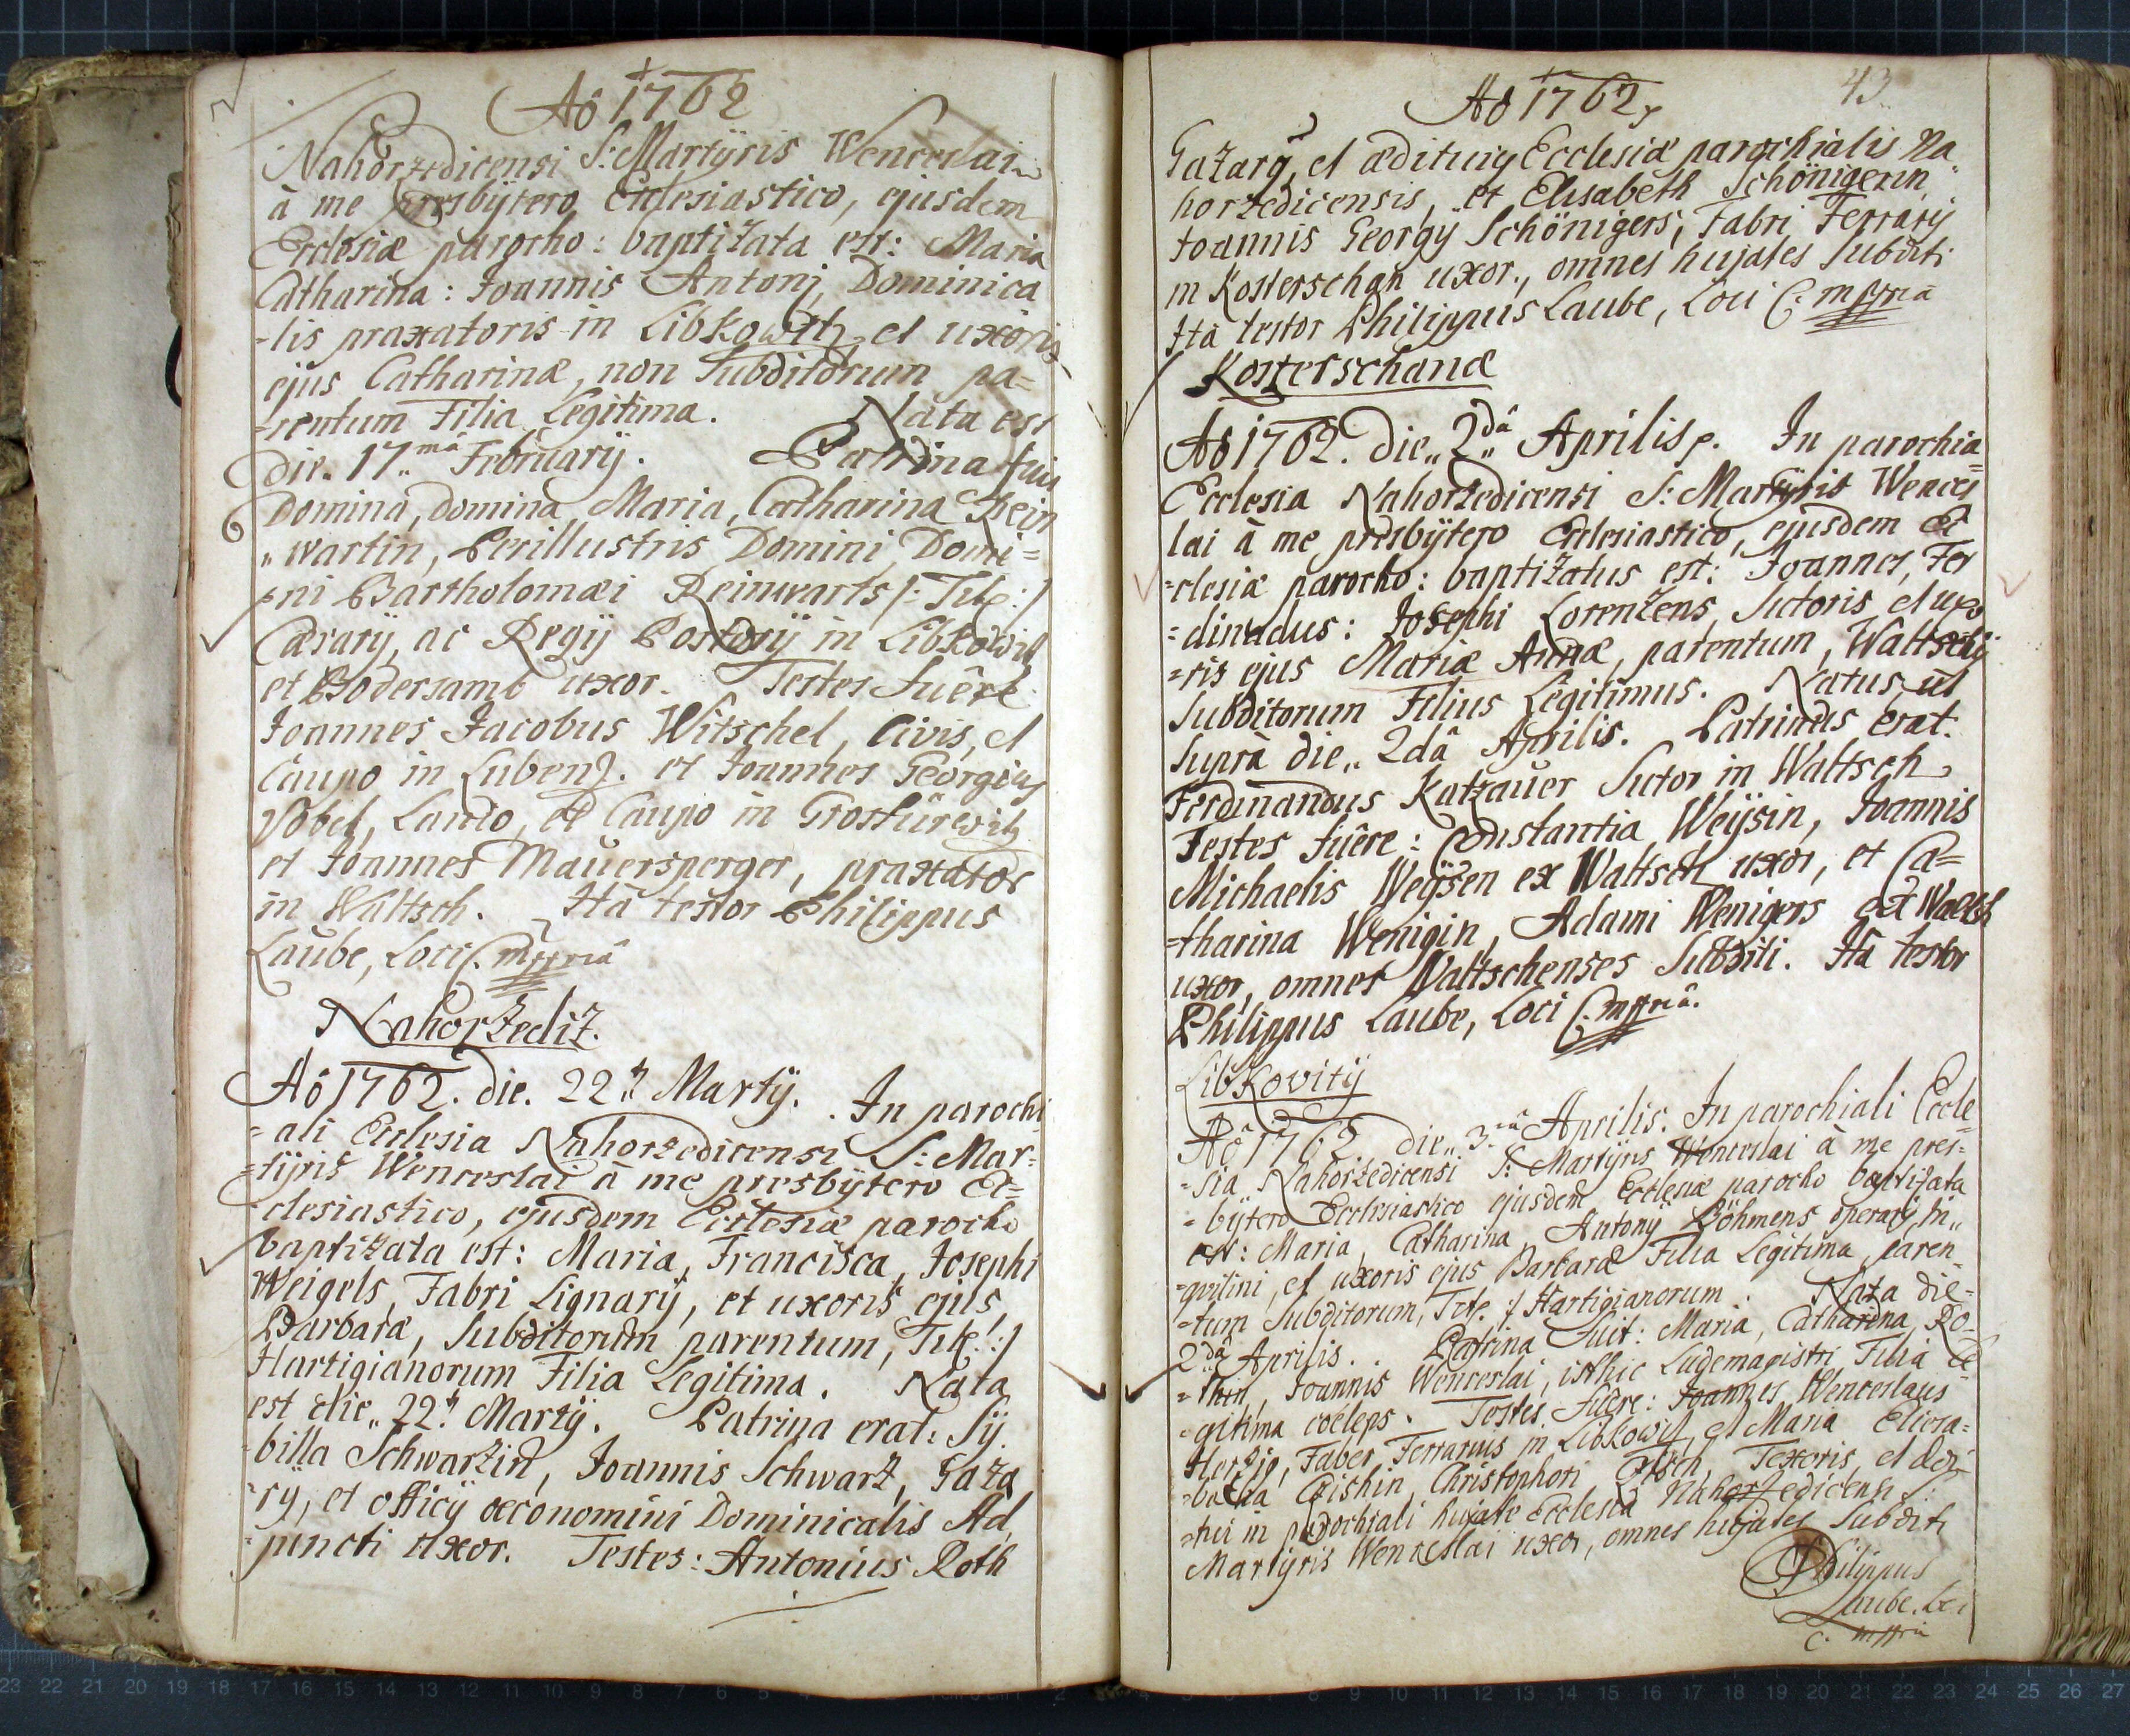 Aô 1762
Nahorzedicensi S: Martÿris Wenceslai
à me presbÿtero Ecclesiastico, ejusdem
Ecclesiæ parocho: baptizata est: Maria
Catharina: Joannis Antonj, Dominica
-lis praxatoris in Libkowitz et uxoris
ejus Catharinæ, non Subditorum pa=
-rentum Filia Legitima. Nata est
die. 17.mâ Februarÿ. Patrina fuit
Domina, domina Maria, Catharina Rein
"wartin, Perillustris Domini Domi=
-ni Bartholomæi Reinwarts /: Tit: /
Cæsarÿ, ac Regÿ Postorÿ in Libkowitz
et Podersamb uxor. Testes fuêre
Joannes Jacobus Witschel, Civis, et
Caupo in Lubenz. et Joannes Georgius
Vobel, Lanio, et Caupo in
et Joannes Mauersperger, praxator
in Waltsch. Ità testor Philippus
Laube, Loci C. mppriâ
Nahorzediz.
Aô 1762. die. 22. Martÿ. In parochi
=ali Ecclesia Nahorzedicensi S: Mar=
=tÿris Wenceslai à me presbÿtero Ec=
clesiastico, ejusdem Ecclesiæ parocho
baptizata est: Maria, Francisca, Josephi
Weigels, Fabri Lignarÿ, et uxoris ejus
Barbaræ, Subditorum parentum, Tit: /
Hartigianorum Filia Legitima. Nata
est die,, 22. Martÿ. Patrina erat: Sÿ
billa Schwarzin, Joannis Schwarz, Gaza
-rÿ, et officÿ œconomini Dominicalis Ad
-juncti uxor. Testes: Antonius Roth
43
Aô 1762
Gazarÿ, et ædituig Ecclesiæ parochialis Na
horzedicensis, et Elisabeth Schönigerin
Joannis Georgÿ Schönigers, Fabri Ferrarÿ
in Kosterschan uxor., omnes hujates Subditi
Ità testor Philippus Laube, Loci C. mppriâ
Kosterschanæ
Aô 1762. Die,, 2.dâ Aprilis. In parochia=
Ecclesia Nahorzedicensi S: Martÿris Wences
lai à me presbÿtero Ecclesiastico, ejusdem Ec
=clesiæ parocho: baptizatus est: Joannes, Fer
=dinadus: Josephi Lorenzens, Sutoris, et uxo
=ris ejus Mariæ Annæ, parentum, Waltschÿ
Subditorum Filius Legitimus. Natus ut
Suprà die,, 2dâ Aprilis. Patrinus erat:
Ferdinandus Katzauer Sutor in Waltsch
Testes fuêre: Constantia Weÿsin, Joannis
Michaelis Weÿsen ex Waltsch uxor, et Ca=
=tharina Wenigin, Adami Wenigers ex Waltsch
uxor, omnes Waltschenses Subditi. Ità testor
Philippus Laube, Loci C. mppriâ.
Libkovitÿ
Aô 1762 die,, 3.â Aprilis. In parochiali Eccle
-sia Nahorzedicensi S: Martÿris Wenceslai à me pres-
-bÿtero Ecclesiastico ejusdem Ecclesiæ parocho baptizata
est: Maria, Catharina, Antonÿ Böhmens operarÿ, In,,
-quilini, et uxoris ejus Barbaræ Filia Legitima, paren-
-tum Subditorum, Tit: / Hartigianorum. Nata die-
2.dâ Aprilis. Patrina Fuit: Maria, Catharina, Ro-
=thin, Joannis Wenceslai, isthic Ludemagistri Filia Le
-gitima cœlebs. Testes fuêre: Joannes Wenceslaus
Herzig, Faber Ferrarius in Libkowitz, et Maria
Christophori Textoris, et
in parochiali hujate Ecclesia Nahorzedicensi S:
Martÿris Wenceslai uxor, omnes hujates Subditi
Philippus
Laube, Loci
C. mppria